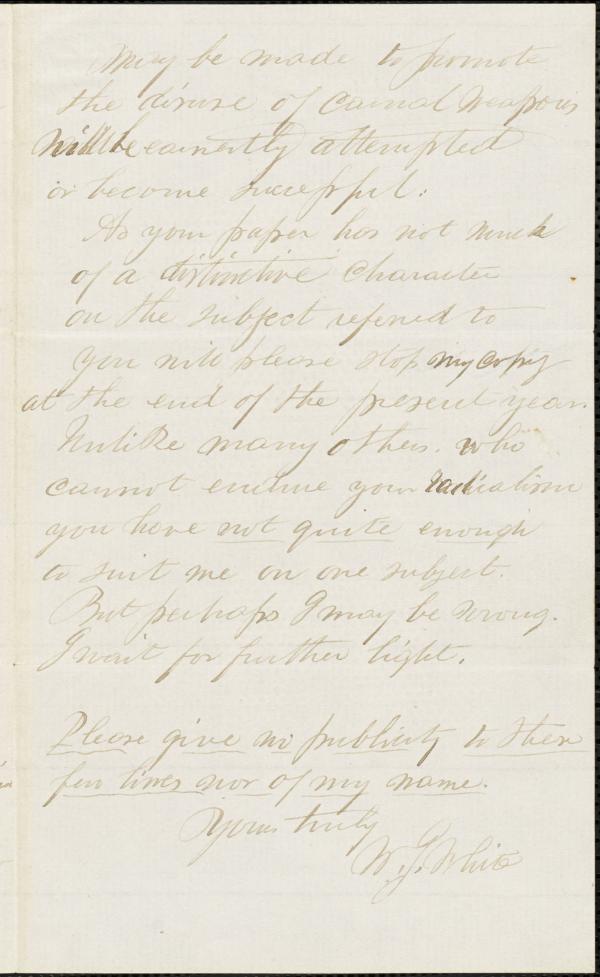 may be made to promote
the disuse of carnal weapons
will be earnestly attempted
or become successful.
As your paper has not much
of a distinctive character
on the subject referred to
you will please stop my copy
at the end of the present year.
Unlike many others. who
cannot endure your radicalism
you have not quite enough
to suit me on one subject.
But perhaps I may be wrong.
I wait for further light.
Please give no publicity to these
few lines nor of my name.
Yours truly
W. G. White